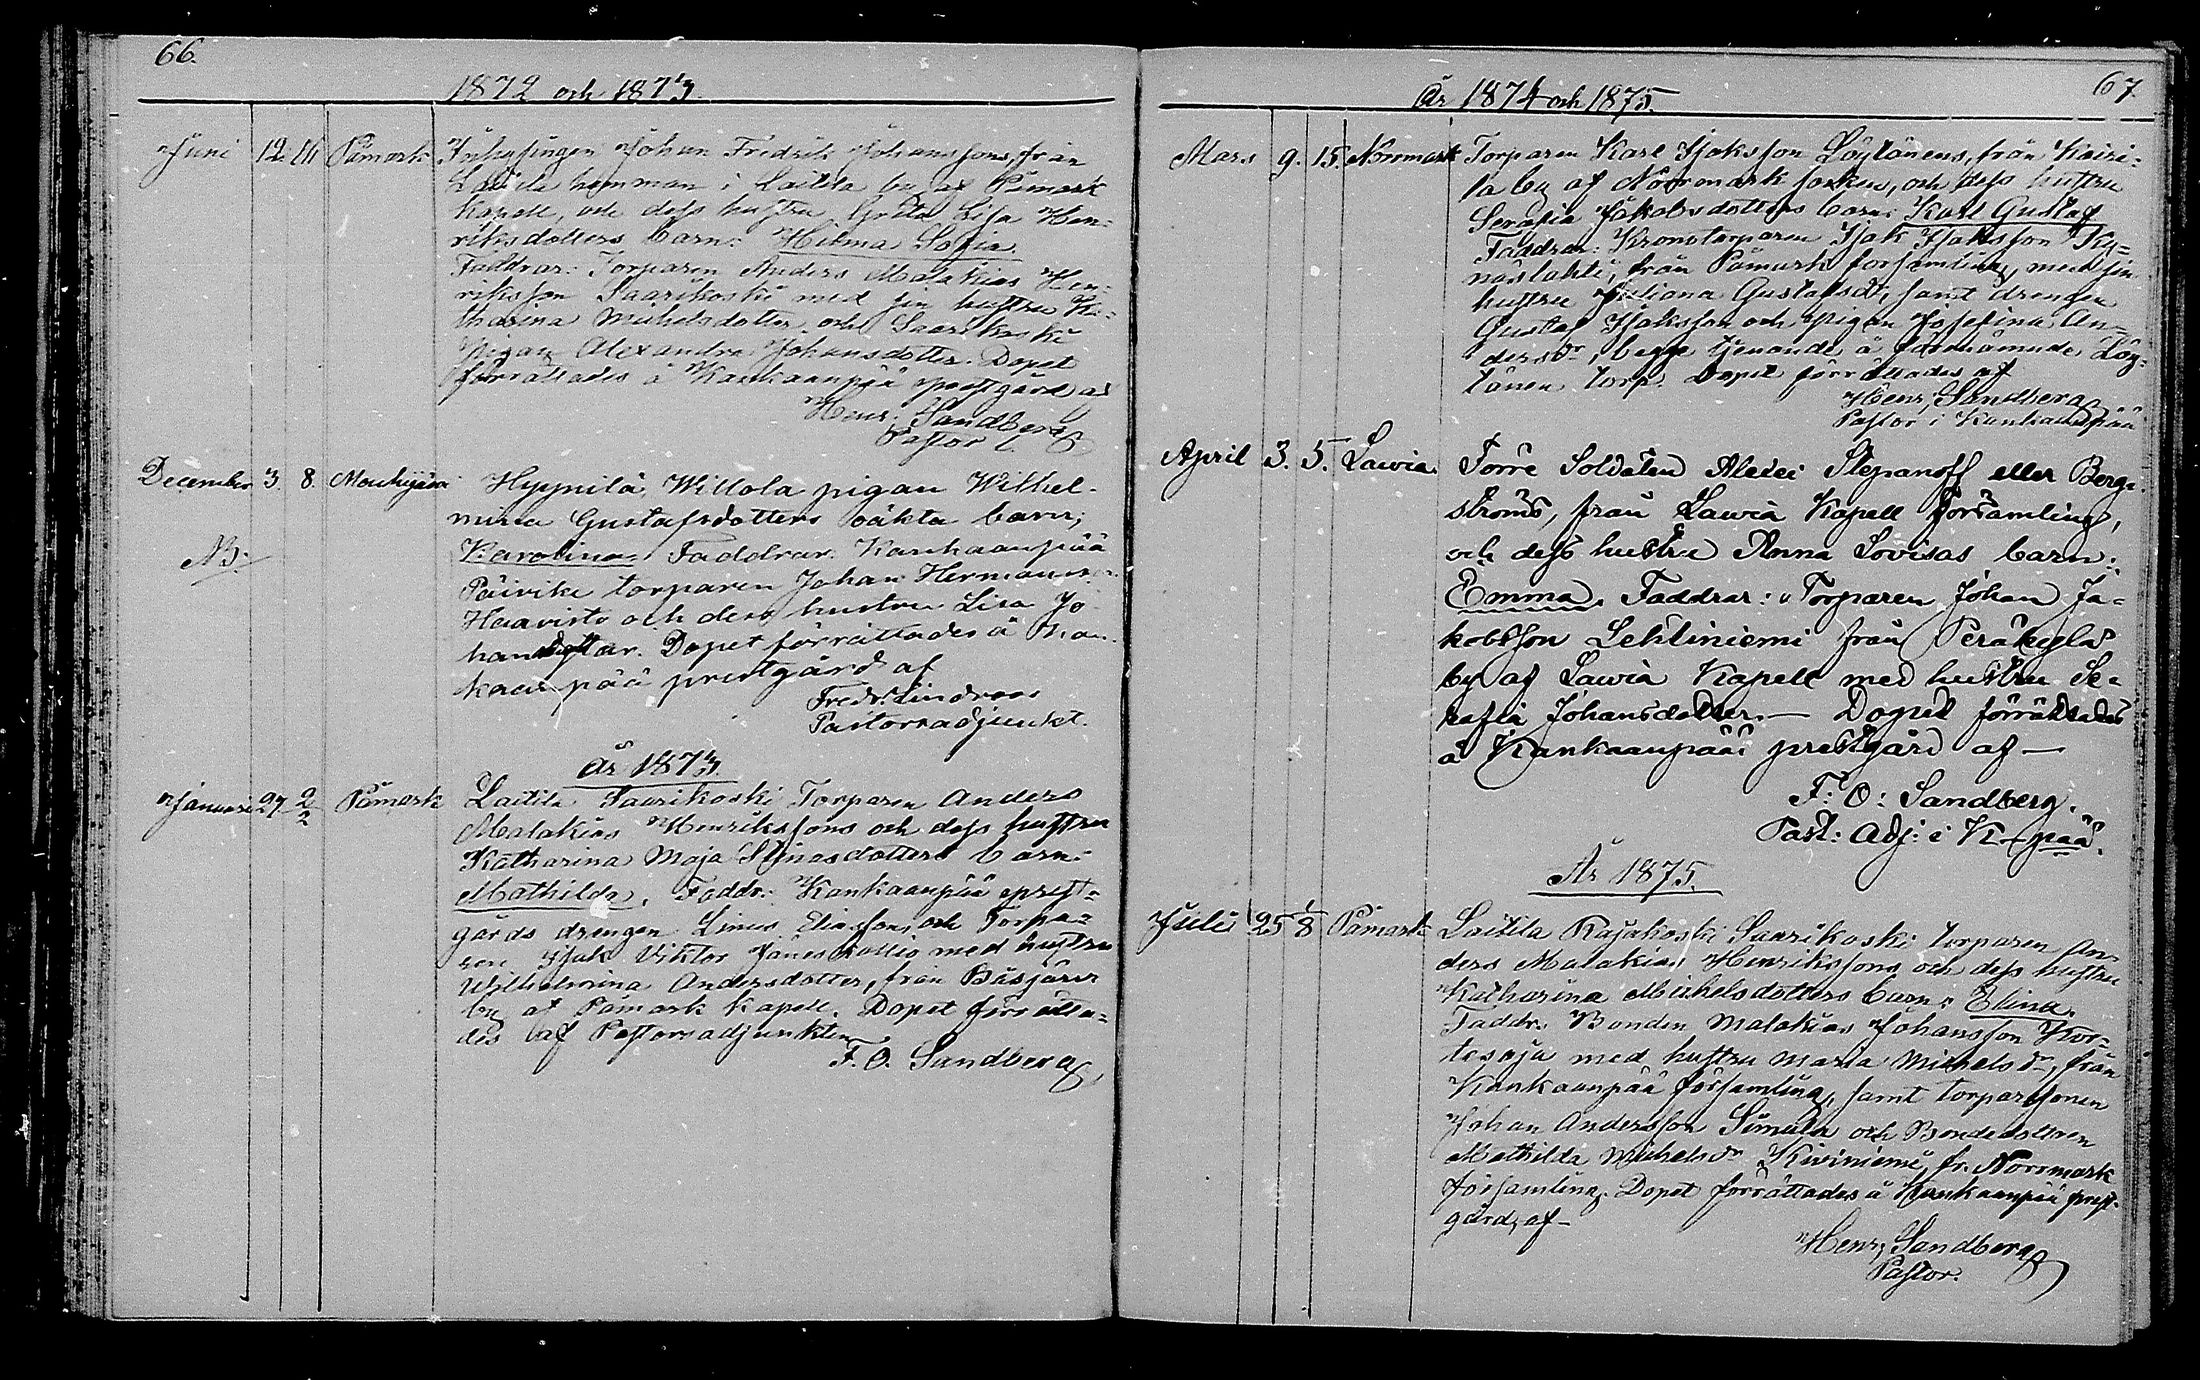 66.
1872 och 1873.
Juni 12. 16 Påmark Inhysingen Johan Fredrik Johanssons, från
Laitila hemman i Laitila by af Påmark
Kapell, och dess hustru Greta Lisa Hen-
riksdotters barn: Hilma Sofia.
Faddrar: Torparen Anders Malakias Hen-
riksson Saarikoski med sin hustru Ka-
tharina Michelsdotter, och Saarikoski
pigan Alexandra Johansdotter. Dopet
förrättades å Kankaanpää prestgård af
Henr. Sandberg
Pastor
December 3. 8. Mouhijärvi Hyynilä, Willola pigan Wilhel-
mina Gustafsdotters oäkta barn;
NB. Karolina. Faddrar. Kankaanpää
Päivike torparen Johan Hermansson
Haavisto och dess hustru Lisa Jo-
hansdotter. Dopet förrättades å Kan-
kaanpää prestgård af
Fredr. Lindroos
Pastorsadjunkt.
År 1873.
Januari 27 2/2 Påmark Laitila Saarikoski Torparen Anders
Malakias Henrikssons och dess hustru
Katharina Maja Stinasdotters barn:
Mathilda. Faddr: Kankaanpää prest-
gårds drengen Linus Eliasson, och Torpa-
ren Isak Viktor Jäneskallio med hustru
Wilhelmina Andersdotter, från Båsjärvi
by af Påmark Kapell. Dopet förrätta-
des af Pastorsadjunkten
F. O. Sandberg,
67.
År 1874 och 1875.
Mars 9. 15. Norrmark Torparen Karl Isaksson Löytänens, från Kairi-
la by af Norrmark socken, och dess hustru
Serafia Jakobsdotters barn: Karl Gustaf
Faddrar: Kronotorparen Isak Isaksson Ky-
näslahti, från Påmark församling, med sin
hustru Juliana Gustafsdr, samt drengen
Gustaf Isaksson och pigan Josefina An-
dersdr, begge tjenande å förenämnde Löy-
tänen torp. Dopet förrättades af
Henr. Sandberg
Pastor i Kankaanpää
April 3. 5. Lawia. Förre Soldaten Alexei Stepanoff eller Berg-
ströms, från Lawia Kapell församling,
och dess hustru Anna Lovisas barn:
Emma. Faddrar: Torparen Johan Ja-
kobsson Lehtiniemi från Peräkylä
by af Lawia Kapell med hustru Se-
rafia Johansdotter. — Dopet förrättades
å Kankaanpää prestgård af —
F: O: Sandberg.
Past: Adj: i K-pää.
År 1875.
Juli 25 1/8 Påmark Laitila Rajakoski Saarikoski torparen An-
ders Malakias Henrikssons och dess hustru
Katharina Michelsdotters barn: Elina.
Faddr: Bonden Malakias Johansson Kor-
tesoja med hustru Maria Michelsdr, från
Kankaanpää församling, samt torparsonen
Johan Andersson Simula och Bondedottren
Mathilda Michelsdr Kiviniemi, fr. Norrmark
församling. Dopet förrättades å Kankaanpää prest-
gård, af —
Henr. Sandberg
Pastor.